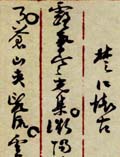 楚江懷古
露氣寒光集微陽
蒼山夾亂流雲